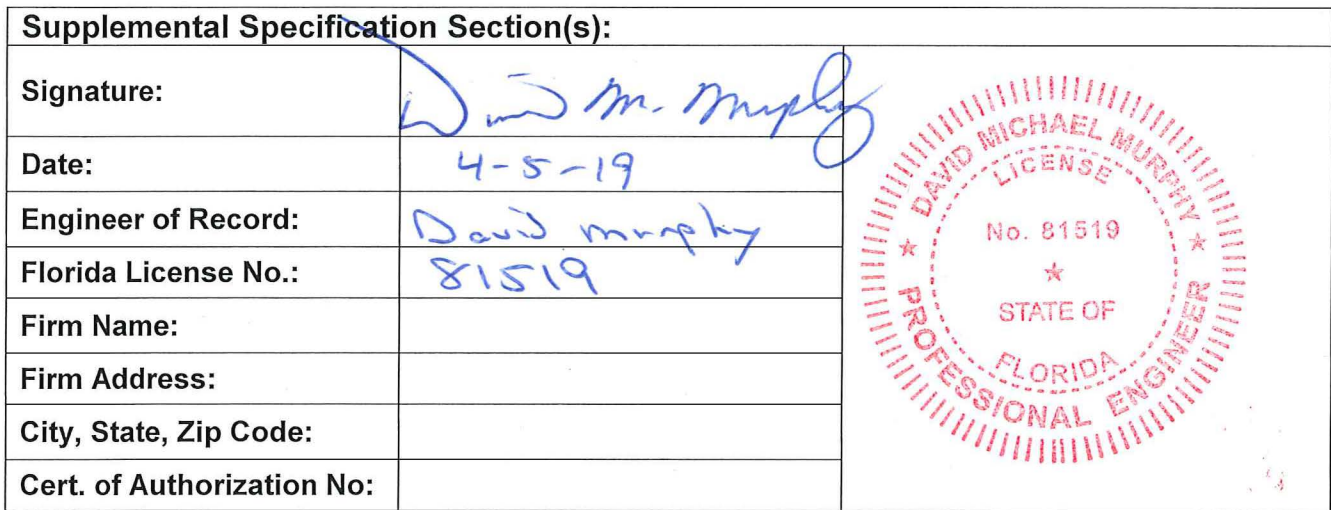 Supplemental Specification Section(s):
Signature: David M. Murphy
Date: 4-5-19
Engineer of Record: David Murphy
Florida License No.: 81519
Firm Name:
Firm Address:
City, State, Zip Code:
Cert. of Authorization No:
DAVID MICHAEL MURPHY
LICENSE
No. 81519
STATE OF
FLORIDA
PROFESSIONAL ENGINEER